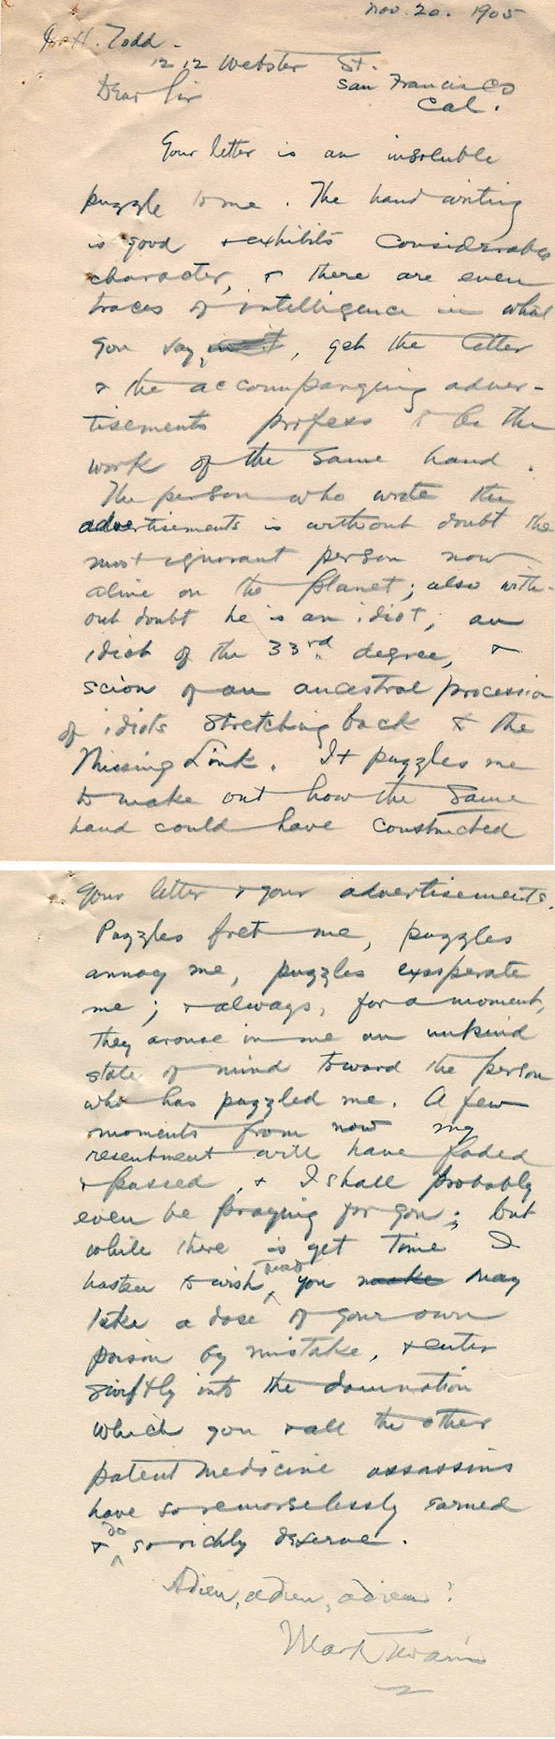 Nov. 20. 1905
J. H. Todd.
1212 Webster St.
San Francisco
Cal.
Dear Sir
Your letter is an insoluble
puzzle to me. The hand writing
is good & exhibits considerable
character, & there are even
traces of intelligence in what
you say, yet the letter
& the accompanying adver-
tisements profess to be the
work of the same hand.
The person who wrote the
advertisements is without doubt the
most ignorant person now
alive on the planet; also with-
out doubt he is an idiot, an
idiot of the 33rd degree, &
scion of an ancestral procession
of idiots stretching back to the
Missing Link. It puzzles me
to make out how the same
hand could have constructed
your letter & your advertisements.
Puzzles fret me, puzzles
annoy me, puzzles exasperate
me; & always, for a moment,
they arouse in me an unkind
state of mind toward the person
who has puzzled me. A few
moments from now my
resentment will have faded
& passed, & I shall probably
even be praying for you; but
while there is yet time I
hasten to wish that you may
take a dose of your own
poison by mistake, & enter
swiftly into the damnation
which you & all the other
patent medicine assassins
have so remorselessly earned
& do so richly deserve.
Adieu, adieu, adieu!
Mark Twain